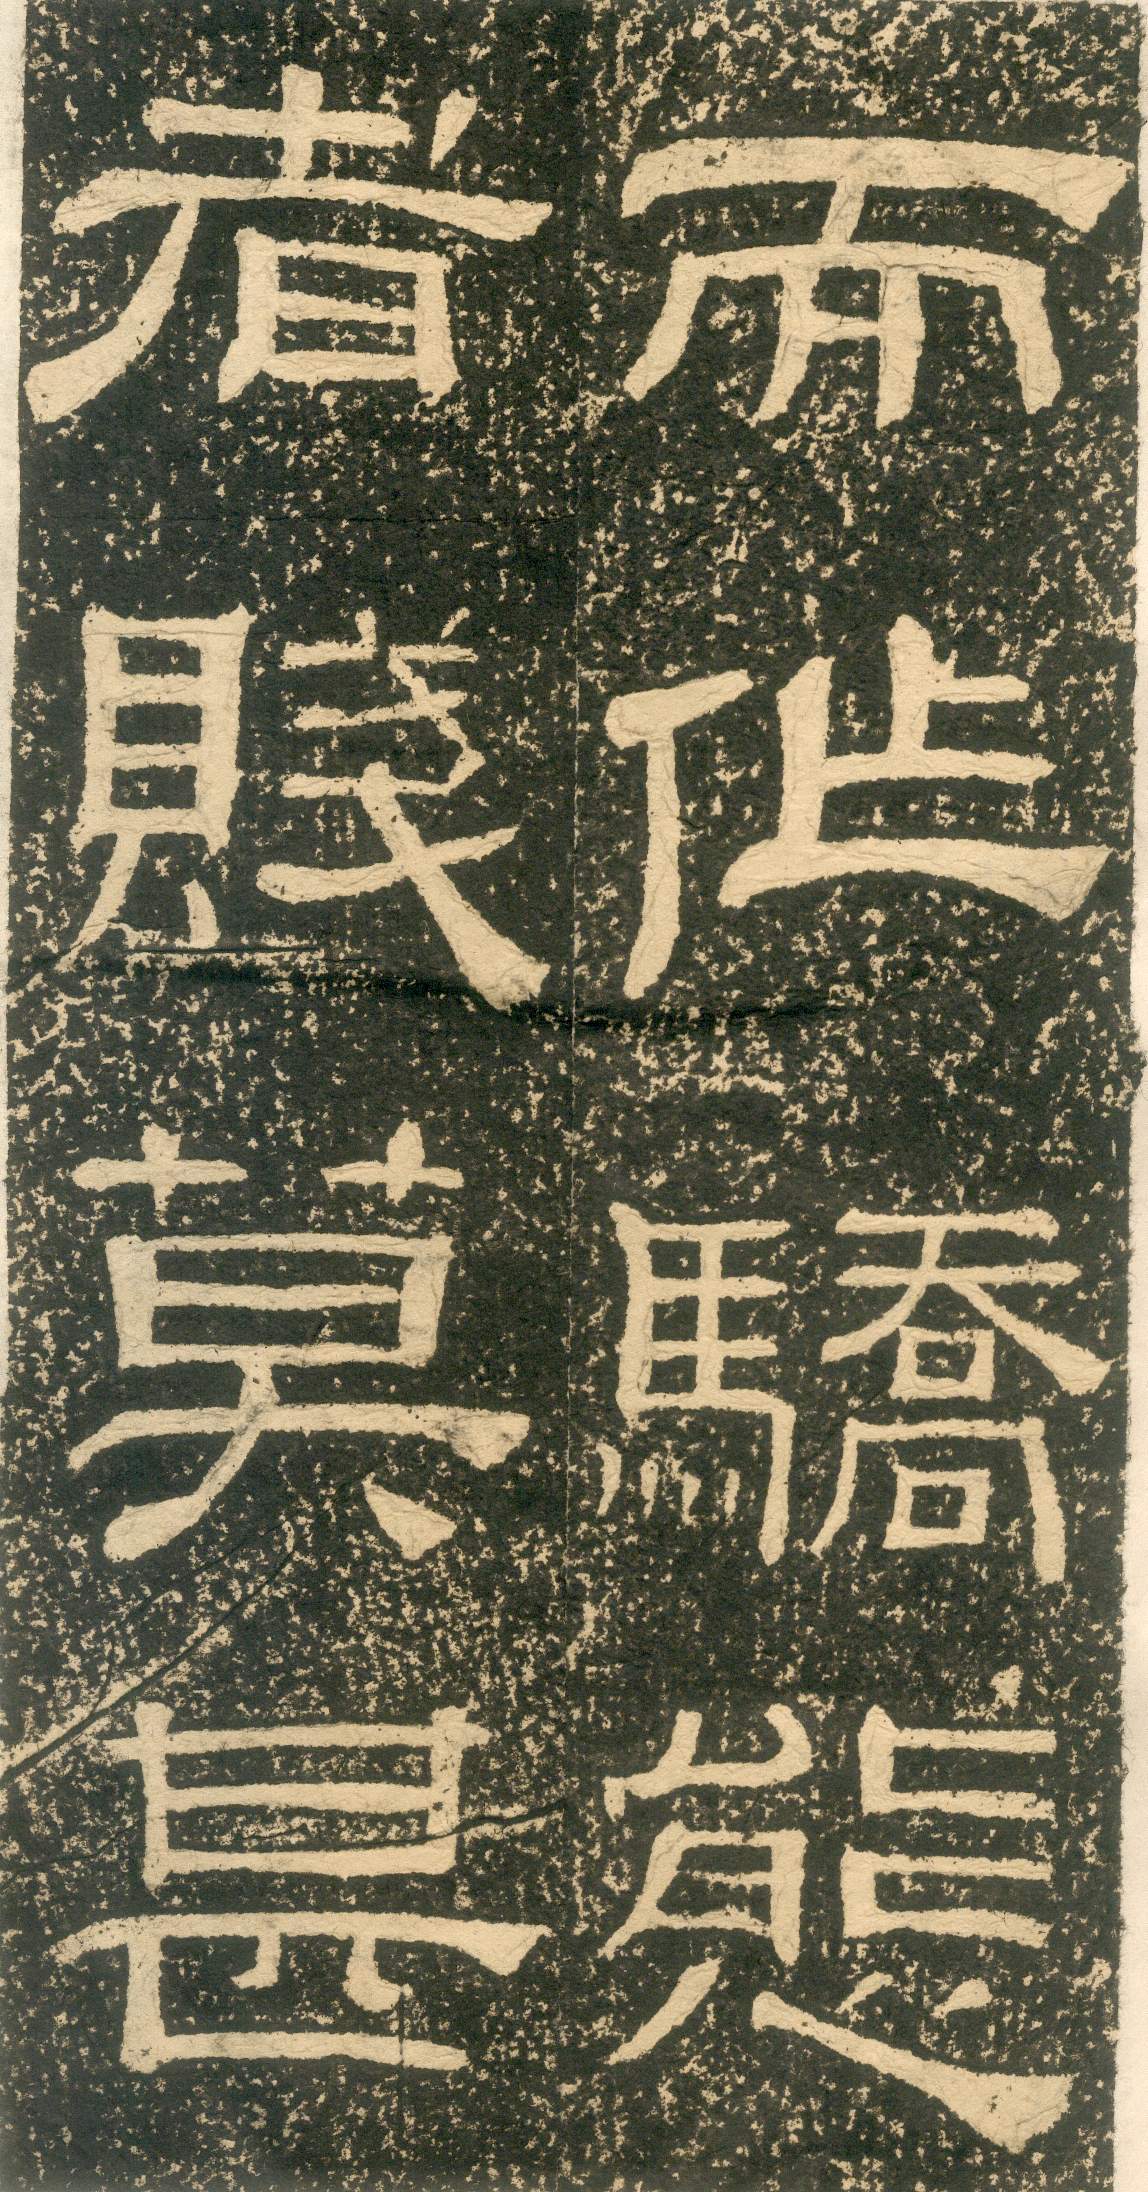 而作驕態
者賤莫甚